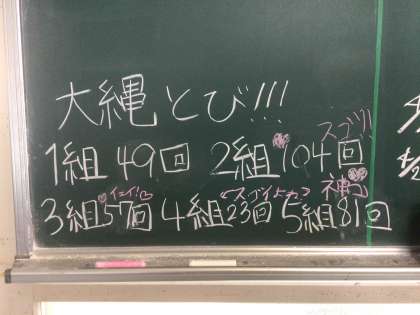 大縄とび!!!
スゴ!!
1組49回 2組104回
イェイ! 神
3組57回 4組23回 5組81回